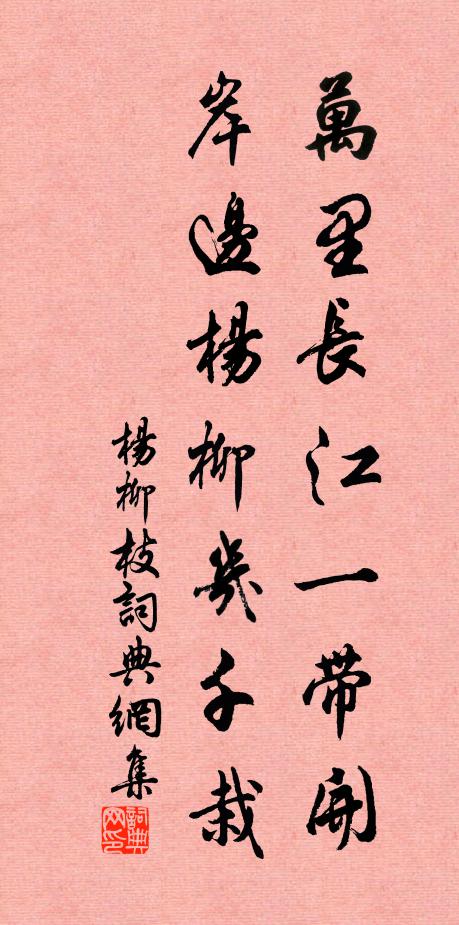 萬里長江一帶開
岸邊楊柳幾千栽
楊柳枝詞典網集
詞典
网印